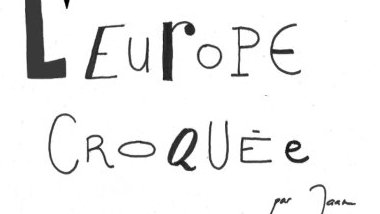 L'EuroPE
CROQUÉe
par